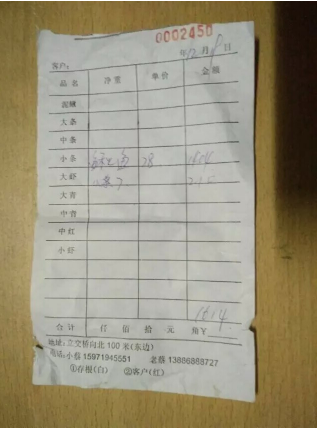 0002450
年12月8日
客户:
品名 净重 单价 金额
泥鳅
大条
中条
小条 28
大虾
大青
中青
中红
小虾
合计 仟 佰 拾 元 角¥ 1614
地址:立交桥向北100米(东边)
电话:小蔡15971945551 老蔡13886888727
①存根(白) ②客户(红)